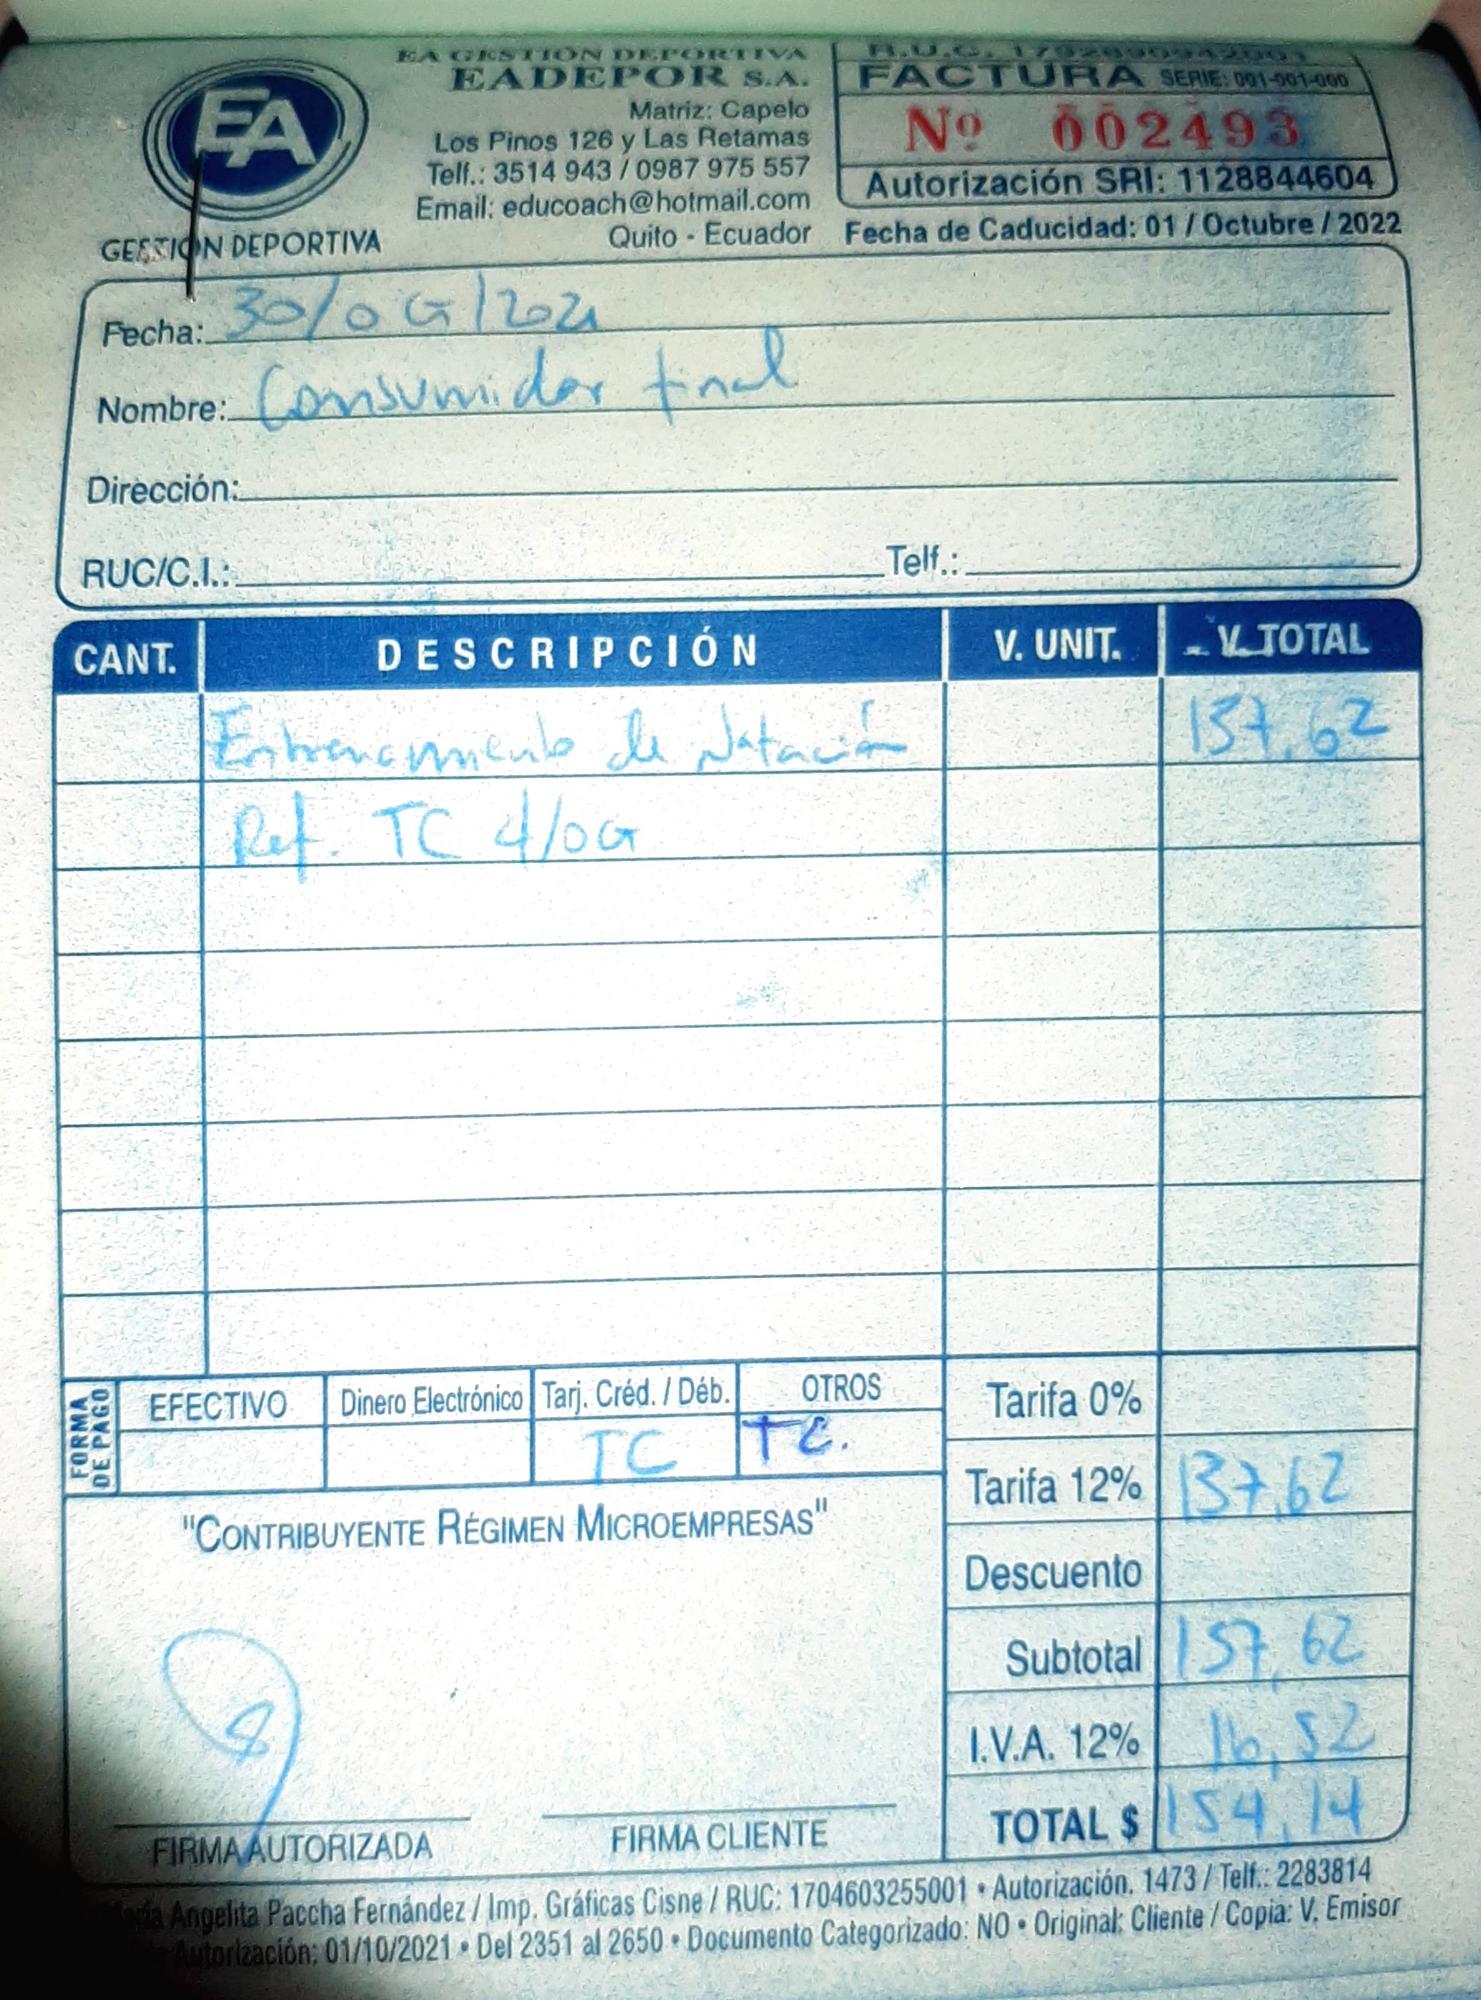 EA GESTIÓN DEPORTIVA
EADEPOR S.A.
Matriz: Capelo
Los Pinos 126 y Las Retamas
Telf.: 3514 943 / 0987 975 557
Email: educoach@hotmail.com
Quito - Ecuador
EA
GESTIÓN DEPORTIVA
R.U.C.
FACTURA SERIE: 001-001-000
Nº 002493
Autorización SRI: 1128844604
Fecha de Caducidad: 01 / Octubre / 2022
Fecha: 30/06/2021
Nombre: Consumidor final
Dirección:
RUC/C.I.: Telf.:
CANT. DESCRIPCIÓN V. UNIT. V. TOTAL
Entrenamiento de Natación 137,62
Ref. TC 4/06
FORMA DE PAGO
EFECTIVO Dinero Electrónico Tarj. Créd. / Déb. OTROS
TC TC.
Tarifa 0%
Tarifa 12% 137,62
Descuento
Subtotal 137,62
I.V.A. 12% 16,52
TOTAL $ 154,14
"CONTRIBUYENTE RÉGIMEN MICROEMPRESAS"
FIRMA AUTORIZADA FIRMA CLIENTE
Angelita Paccha Fernández / Imp. Gráficas Cisne / RUC: 1704603255001 • Autorización. 1473 / Telf.: 2283814
Autorización: 01/10/2021 • Del 2351 al 2650 • Documento Categorizado: NO • Original: Cliente / Copia: V. Emisor